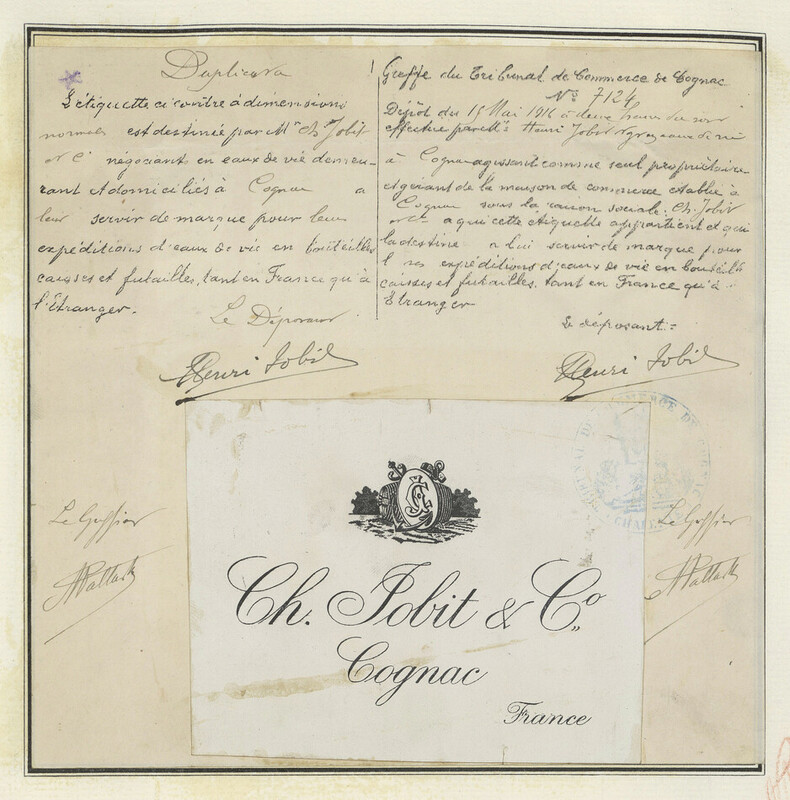 Duplicata
L'étiquette ci contre à dimensions
normales est destinée par Mr Ch. Jobit
& Cie négociant en eaux de vie demeu-
rant et domiciliés à Cognac a
leur servir de marque pour leurs
expéditions d'eaux de vie en bouteilles
caisses et futailles, tant en France qu'à
l'Étranger.
Le Déposant
Henri Jobit
Greffe du Tribunal de Commerce de Cognac
No 7124
Dépôt du 15 Mai 1916 à deux heures du soir
effectué par Mr Henri Jobit
à Cognac agissant comme seul propriétaire
et gérant de la maison de commerce établie à
Cognac sous la raison sociale: Ch. Jobit
& Cie a qui cette étiquette appartient et qui
la destine a lui servir de marque pour
ses expéditions d'eaux de vie en bouteilles
caisses et futailles, tant en France qu'à
Etranger
Le déposant =
Henri Jobit
Le Greffier
Le Greffier
Ch. Jobit & Co.
Cognac
France